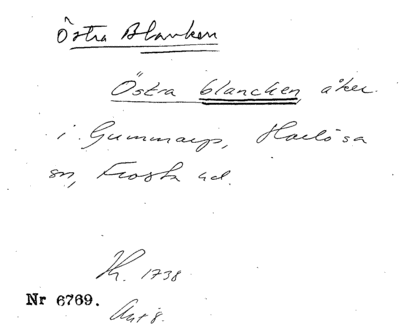 Östra Blanken
Östra blancken, åker
i Gummarp, Harlösa
sn, Frosta hd.
Kh. 1738
Nr 6769.
Akt 8.